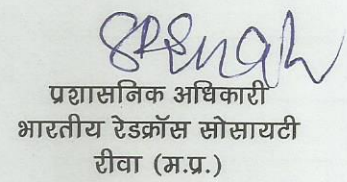 प्रशासनिक अधिकारी
भारतीय रेडक्रॉस सोसायटी
रीवा (म.प्र.)